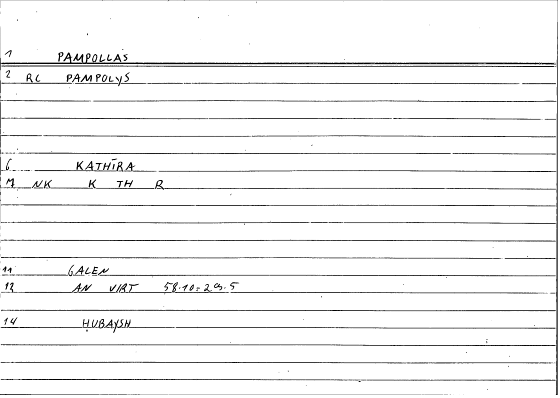 1 PAMPOLLAS
2 RC PAMPOLYS
6 KATHĪRA
M NK K TH R
11 GALEN
12 AN VIRT 58.10=29.5
14 ḤUBAYSH